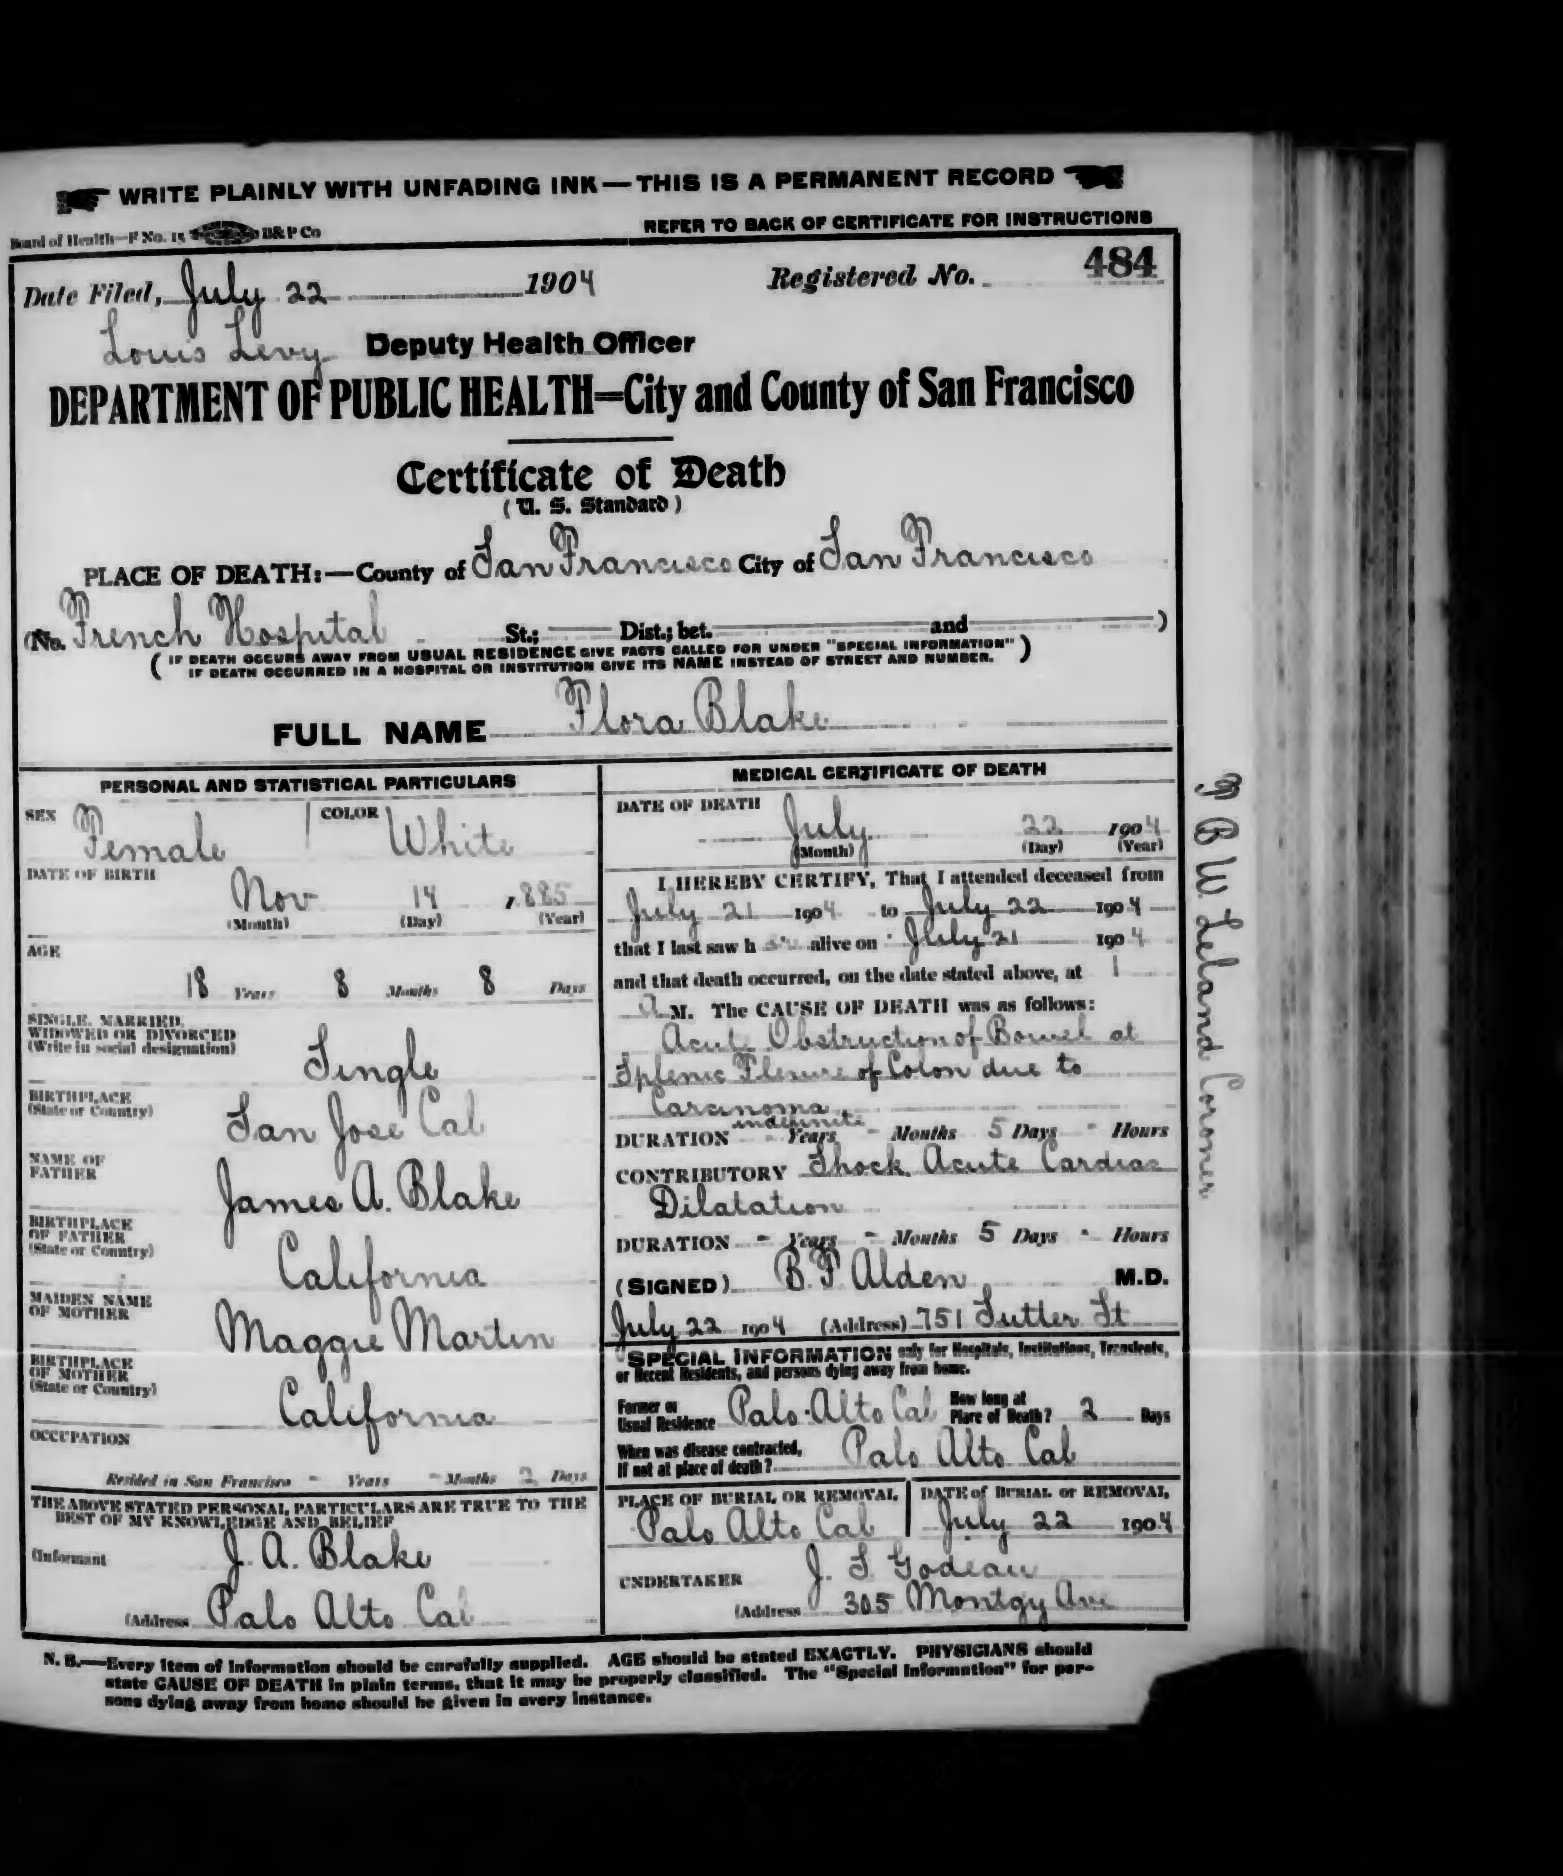 WRITE PLAINLY WITH UNFADING INK—THIS IS A PERMANENT RECORD
Board of Health—F No. 15 B&P Co
REFER TO BACK OF CERTIFICATE FOR INSTRUCTIONS
Date Filed, July 22 1904 Registered No. 484
Louis Levy Deputy Health Officer
DEPARTMENT OF PUBLIC HEALTH=City and County of San Francisco
Certificate of Death
(U. S. Standard)
PLACE OF DEATH:—County of San Francisco City of San Francisco
(No. French Hospital St.; Dist.; bet. and )
(IF DEATH OCCURS AWAY FROM USUAL RESIDENCE GIVE FACTS CALLED FOR UNDER "SPECIAL INFORMATION"
IF DEATH OCCURRED IN A HOSPITAL OR INSTITUTION GIVE ITS NAME INSTEAD OF STREET AND NUMBER.)
FULL NAME Flora Blake
PERSONAL AND STATISTICAL PARTICULARS
SEX Female COLOR White
DATE OF BIRTH
Nov 14 , 885
(Month) (Day) (Year)
AGE
18 Years 8 Months 8 Days
SINGLE, MARRIED,
WIDOWED OR DIVORCED
(Write in social designation)
Single
BIRTHPLACE
(State or Country)
San Jose Cal
NAME OF
FATHER
James A. Blake
BIRTHPLACE
OF FATHER
(State or Country)
California
MAIDEN NAME
OF MOTHER
Maggie Martin
BIRTHPLACE
OF MOTHER
(State or Country)
California
OCCUPATION
Resided in San Francisco - Years - Months 2 Days
THE ABOVE STATED PERSONAL PARTICULARS ARE TRUE TO THE
BEST OF MY KNOWLEDGE AND BELIEF
(Informant J. A. Blake
(Address Palo Alto Cal
MEDICAL CERTIFICATE OF DEATH
DATE OF DEATH
July 22 1904
(Month) (Day) (Year)
I HEREBY CERTIFY, That I attended deceased from
July 21 1904 to July 22 1904
that I last saw her alive on July 21 1904
and that death occurred, on the date stated above, at 1
A M. The CAUSE OF DEATH was as follows:
Acute Obstruction of Bowel at
Splenic Flexure of Colon due to
Carcinoma
indefinite
DURATION - Years - Months 5 Days - Hours
CONTRIBUTORY Shock Acute Cardiac
Dilatation
DURATION - Years - Months 5 Days - Hours
(SIGNED) B. F. Alden M.D.
July 22 1904 (Address) 751 Sutter St
SPECIAL INFORMATION only for Hospitals, Institutions, Transients,
or Recent Residents, and persons dying away from home.
Former or
Usual Residence Palo Alto Cal
How long at
Place of Death? 2 Days
When was disease contracted,
If not at place of death? Palo Alto Cal
PLACE OF BURIAL OR REMOVAL
Palo Alto Cal
DATE of BURIAL or REMOVAL
July 22 1904
UNDERTAKER J. S. Godeau
(Address 305 Montgy Ave
N. B.—Every item of information should be carefully supplied. AGE should be stated EXACTLY. PHYSICIANS should
state CAUSE OF DEATH in plain terms, that it may be properly classified. The "Special Information" for per-
sons dying away from home should be given in every instance.
B W. Leland Coroner